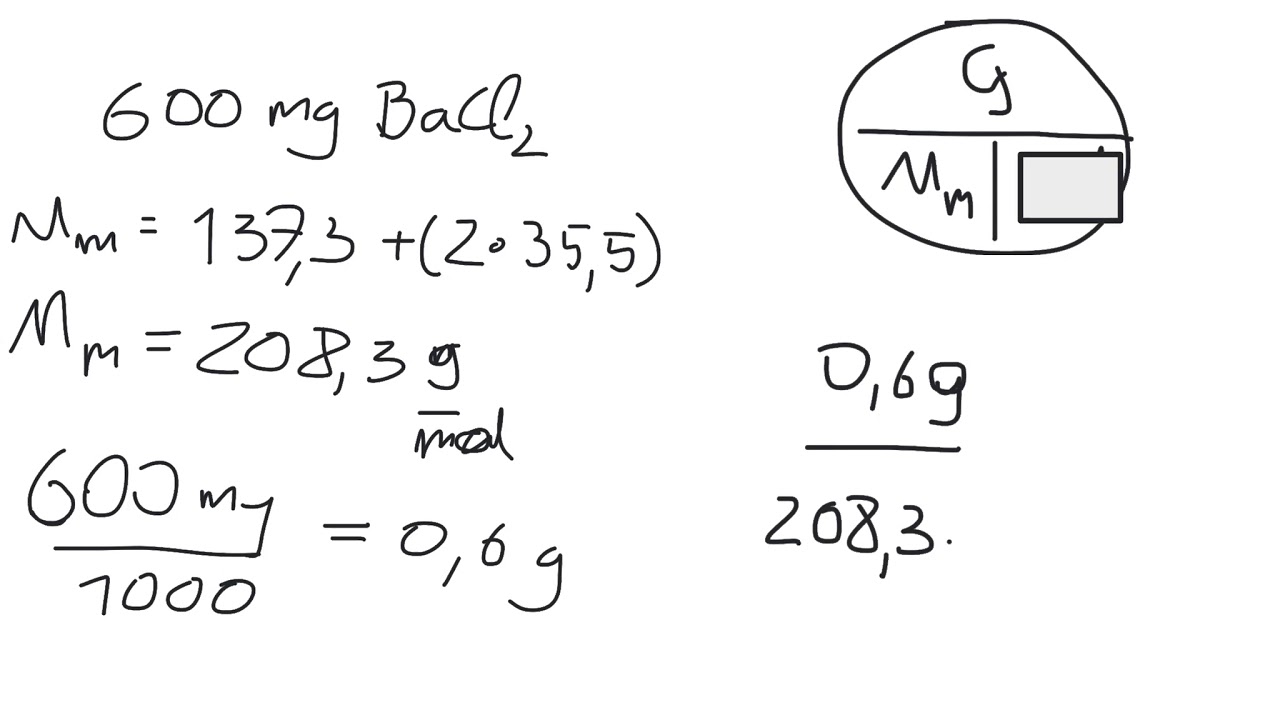 600 mg BaCl₂
Mm = 137,3 + (2·35,5)
Mm = 208,3 g
mol
600 mg
1000
= 0,6 g
G
Mm
0,6g
208,3.